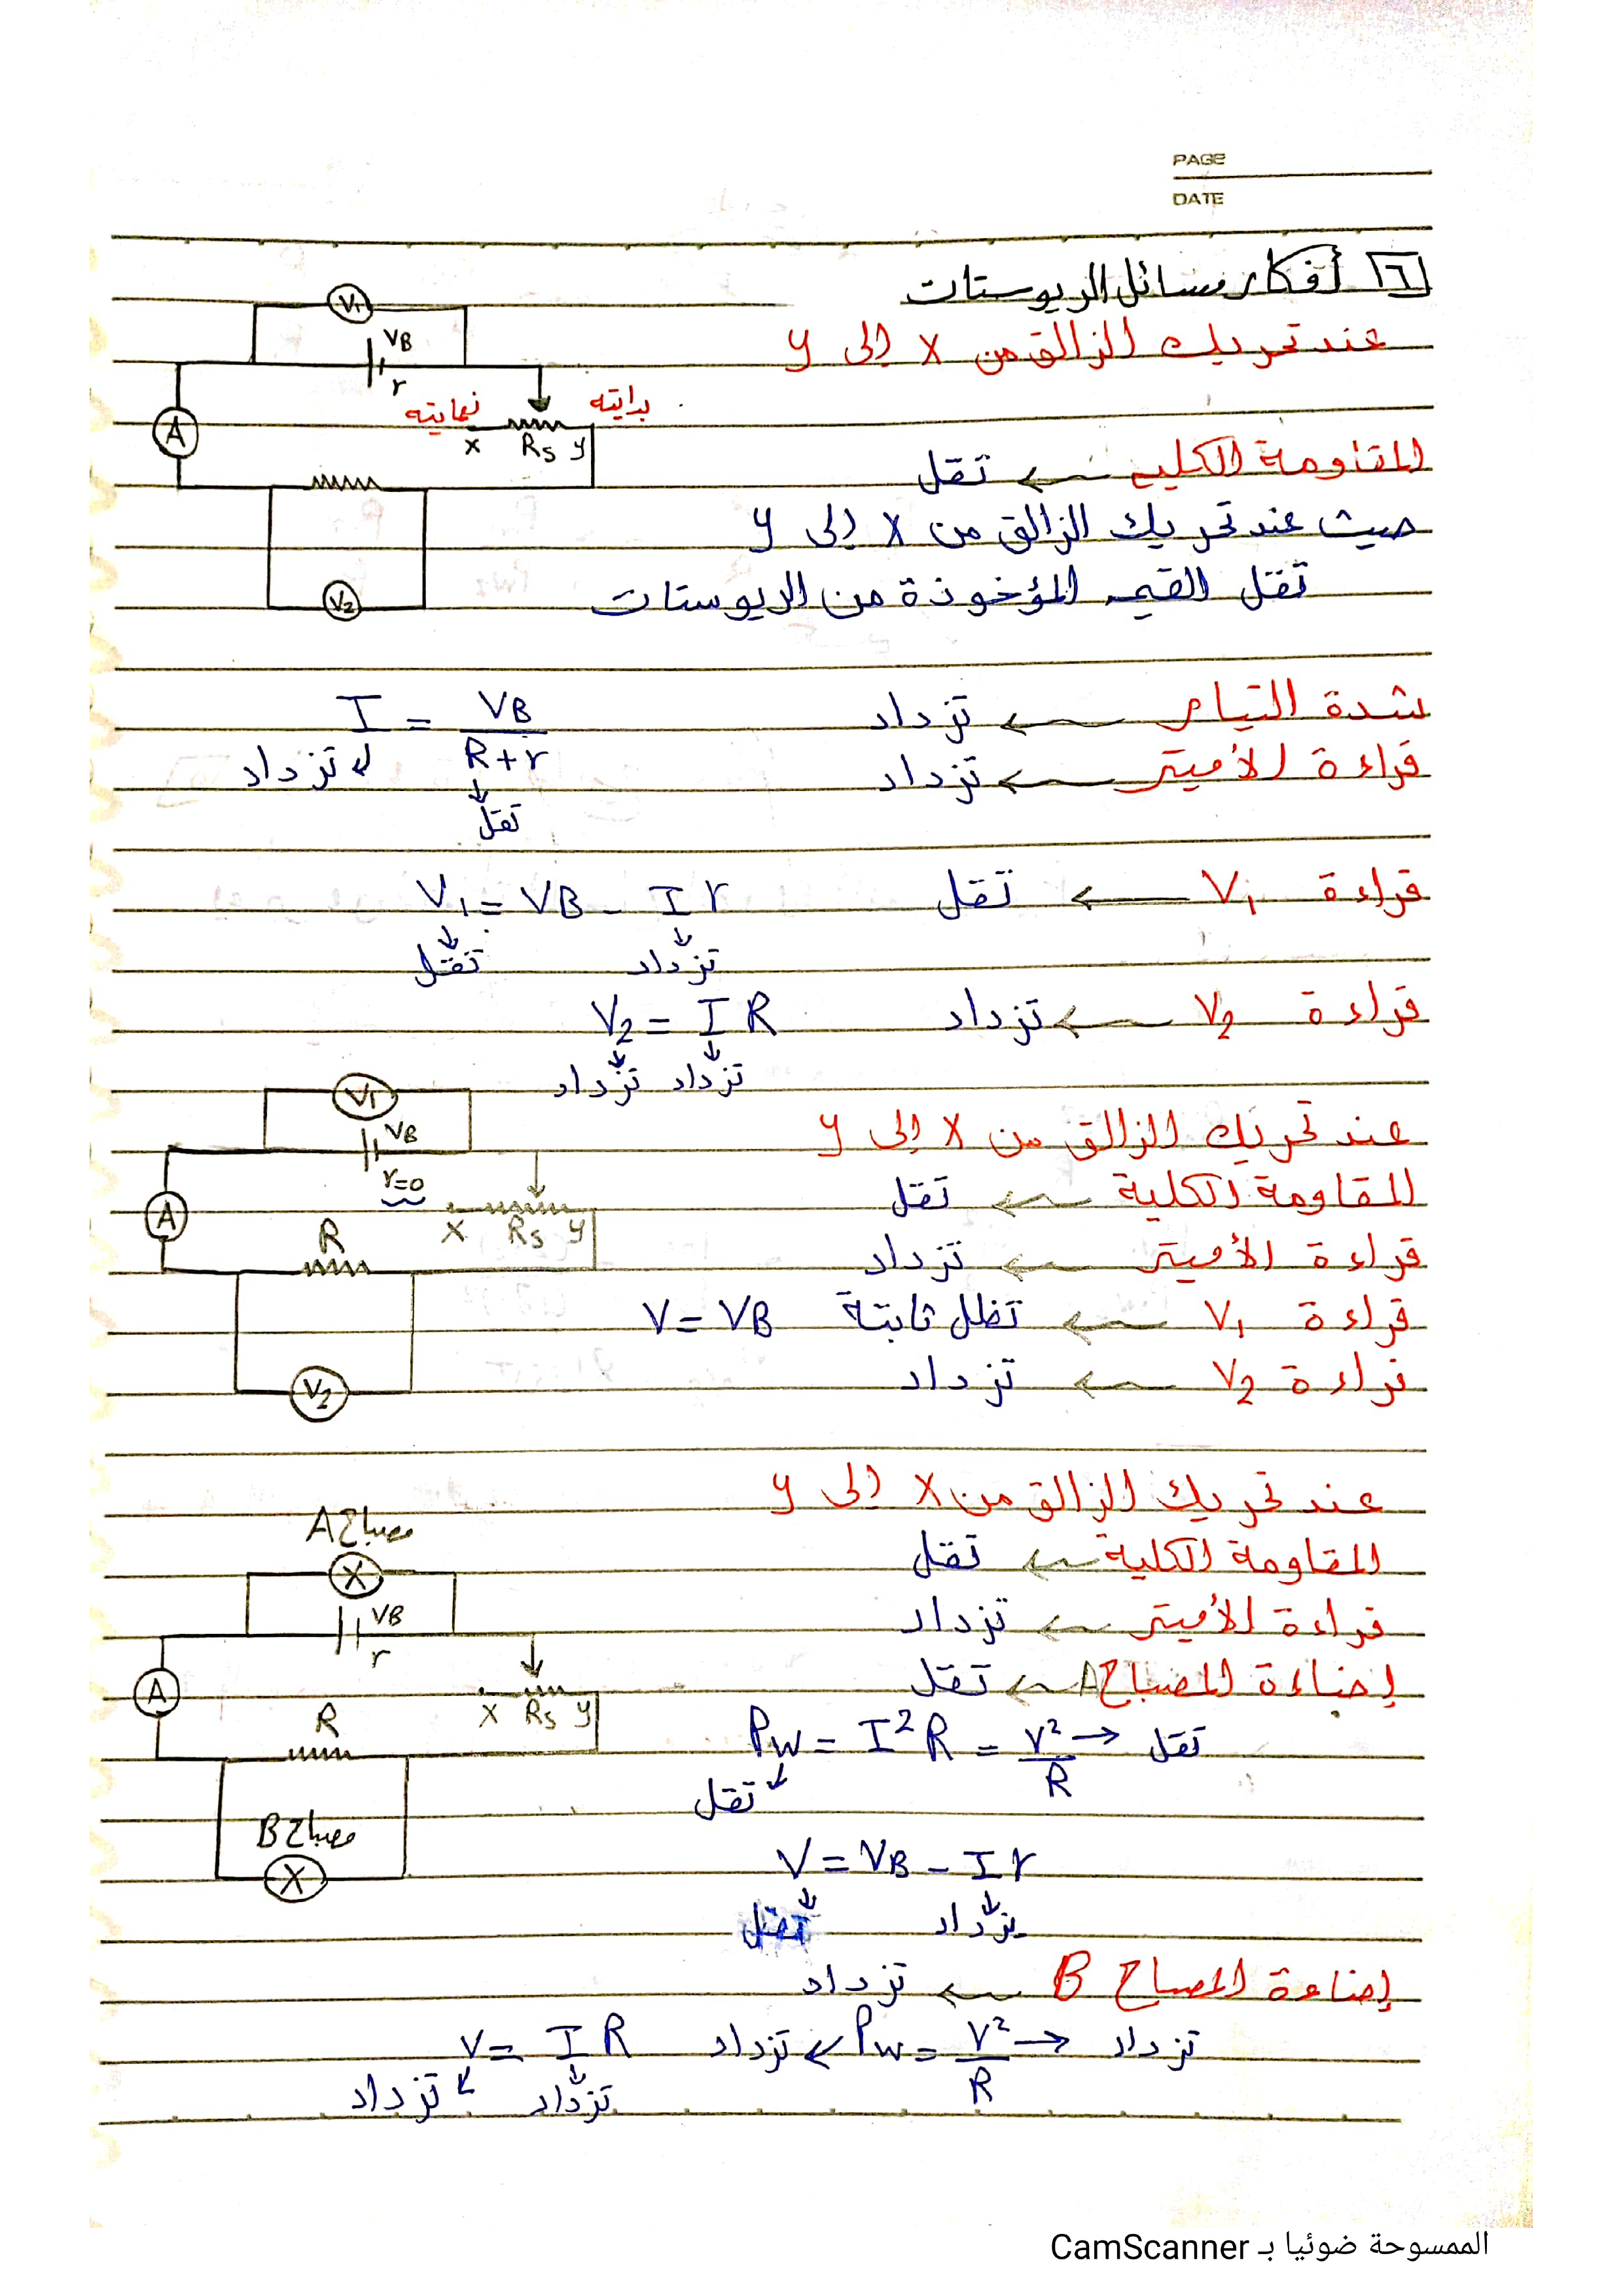 PAGE
DATE
٦ أفكار مسائل الريوستات
عند تحريك الزالق من X إلى y
V1
VB
r
نهايته
بدايته
A
X RS y
المقاومة الكلية ← تقل
حيث عند تحريك الزالق من X إلى y
تقل القيمة المأخوذة من الريوستات
V2
شدة التيار ← تزداد
I = VB / R+r
تزداد
قراءة الأميتر ← تزداد
تقل
قراءة V1 ← تقل
V1 = VB - I r
تقل تزداد
قراءة V2 ← تزداد
V2 = I R
تزداد تزداد
عند تحريك الزالق من X إلى y
V1
VB
r=0
المقاومة الكلية ← تقل
A
R
X RS y
قراءة الأميتر ← تزداد
قراءة V1 ← تظل ثابتة V = VB
قراءة V2 ← تزداد
V2
عند تحريك الزالق من X إلى y
مصباح A
X
المقاومة الكلية ← تقل
VB
r
قراءة الأميتر ← تزداد
إضاءة المصباح A ← تقل
A
R
X RS y
Pw = I² R = V² / R → تقل
تقل
مصباح B
X
V = VB - I r
تقل تزداد
إضاءة المصباح B ← تزداد
تزداد ← Pw = V² / R → تزداد
V = I R
تزداد تزداد
الممسوحة ضوئيا بـ CamScanner